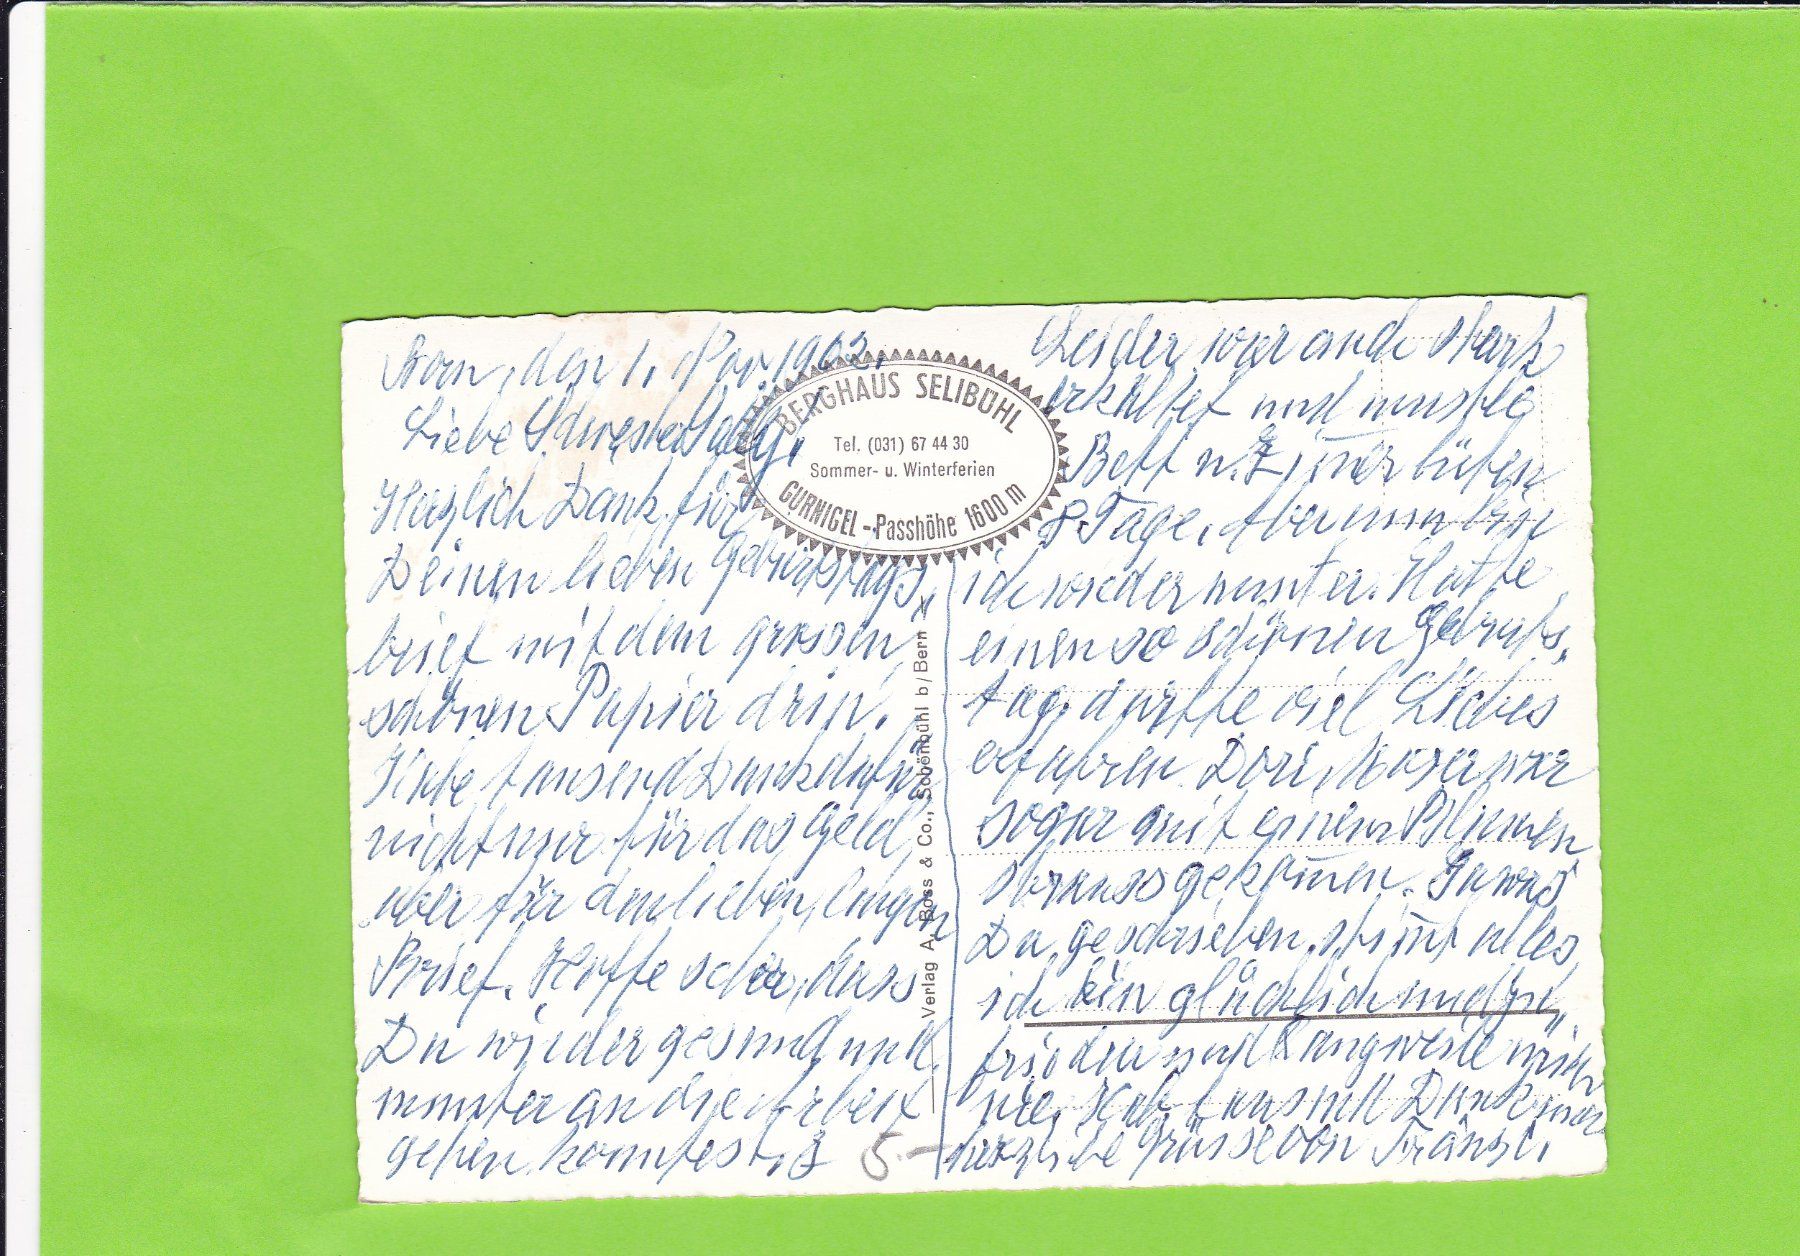 Bern, den 1. Nov 1963.
Liebe Schwester
Herzlich Dank für
Deinen lieben Geburtstags„
brief mit dem grossen,
schönen Papier drin.
Habe tausend Dank dafür
nicht nur für das Geld,
aber für den lieben, langen
Brief. Hoffe sehr, dass
Du wieder gesund und
munter an die Arbeit
gehen konntest.
5.-
BERGHAUS SELIBÜHL
Tel. (031) 67 44 30
Sommer- u. Winterferien
GURNIGEL-Passhöhe 1600 m
Verlag A. Boss & Co., Schönbühl b/Bern
Leider war auch stark
erkältet und musste
Bett u. Zimmer hüten
8 Tage. Aber nun bin
ich wieder munter. Hatte
einen so schönen Geburts„
tag, durfte viel Liebes
erfahren. Dori Moser war
sogar mit einem Blumen
strauss gekommen. Ja was
Du geschrieben, stimmt alles,
ich bin glücklich und zu„
frieden und Langweile mich
nie. Hab tausend Dank
herzliebe Grüsse von Fränzi.